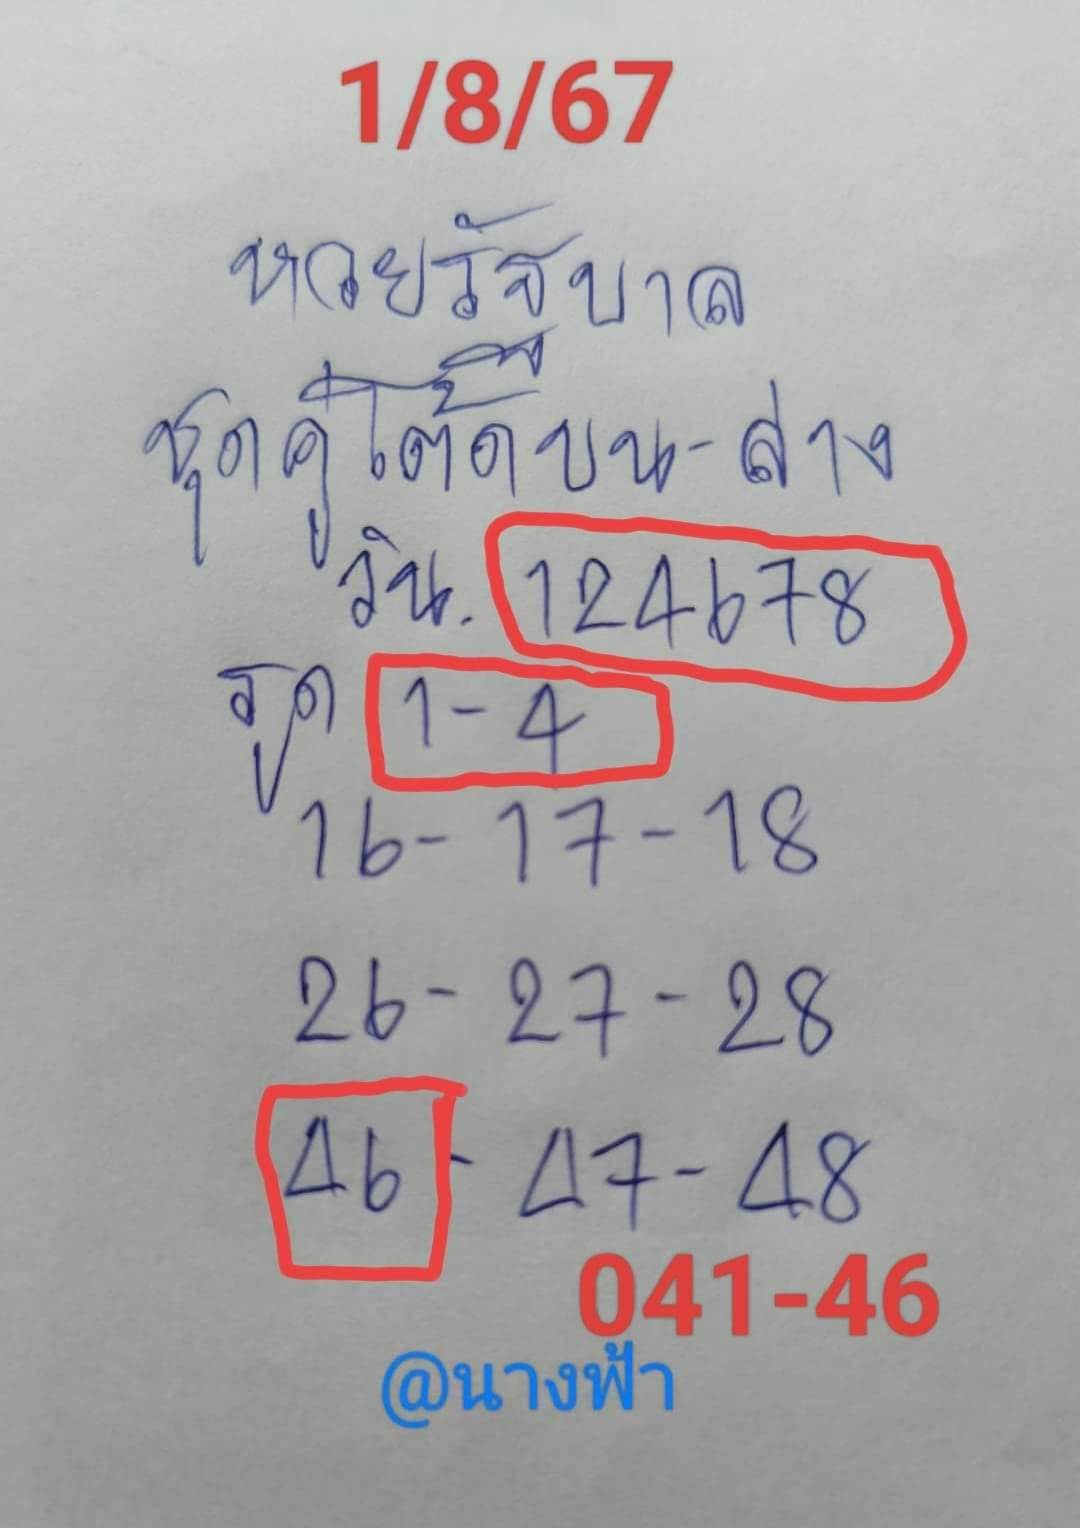 1/8/67
หวยรัฐบาล
ชุดคู่โต๊ดบน-ล่าง
วิน. 124678
รูด 1-4
16-17-18
26-27-28
46-47-48
041-46
@นางฟ้า